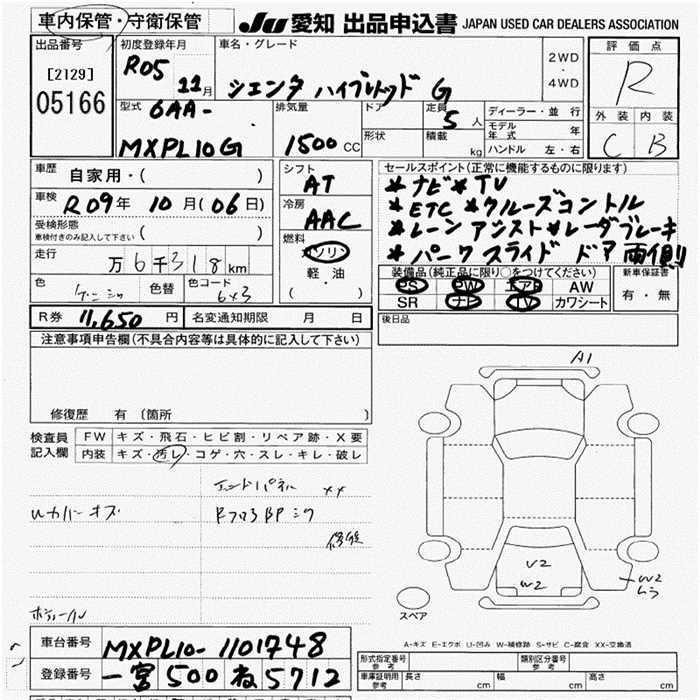 車内保管・守衛保管 JU 愛知 出品申込書 JAPAN USED CAR DEALERS ASSOCIATION
出品番号 [2129] 05166
初度登録年月 R05 11月
車名・グレード シエンタ ハイブリッド G
2WD ・ 4WD
評価点 R
外装 内装 C B
型式 6AA- MXPL10G
排気量 1500 CC
ドア 形状
定員 5 人
積載 kg
ディーラー・並行
モデル年式 年
ハンドル 左・右
車歴 自家用・( )
車検 R09年 10月(06日)
受検形態 車検付きのみ記入して下さい ( )
走行 万6千318km
色 色替 色コード 6×3
シフト AT
冷房 AAC
燃料 ガソリン 軽油 ( )
セールスポイント(正常に機能するものに限ります)
*ナビ*TV
*ETC *クルーズコントル
*レーンアシスト*レーダブレーキ
*パークスライドドア両側
装備品(純正品に限り○をつけてください)
PS PW エアB AW
SR ナビ TV カワシート
新車保証書 有・無
R券 11,650 円 名変通知期限 月 日
後日品
注意事項申告欄(不具合内容等は具体的に記入して下さい)
修復歴 有 (箇所 )
検査員記入欄
FW キズ・飛石・ヒビ割・リペア跡・X要
内装 キズ・汚レ・コゲ・穴・スレ・キレ・破レ
エンドパネル XX
Uカバーキズ
修正
A1
U2
W2
W2
ムラ
スペア
A-キズ E-エクボ U-凹み W-補修跡 S-サビ C-腐食 XX-交換済
車台番号 MXPL10-1101748
登録番号 一宮 500 ね 5712
形式指定番号 参考 類別区分番号 参考
車庫証明用 参考 長さ cm 幅 cm 高さ cm